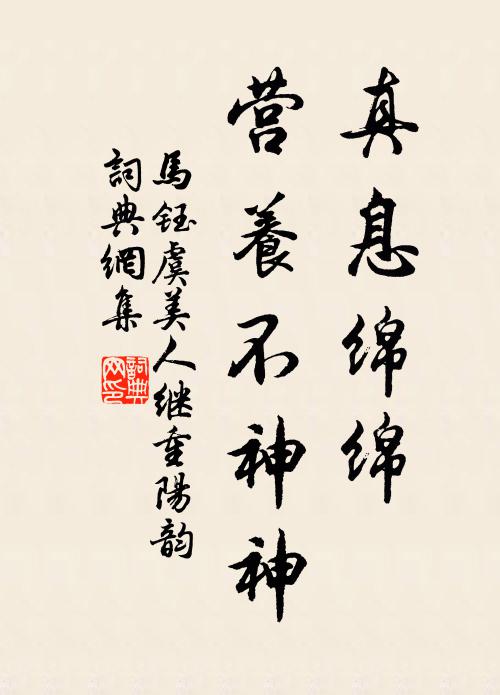 真息绵绵
营養不神神
馬钰虞美人继重陽韵
詞典網集
詞典
网印